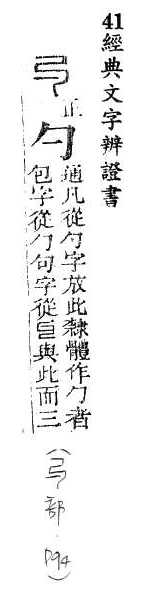 41經典文字辨證書
正
勺通凡從勺字放此隸體作勹者
包字從勹句字從㠯與此而三
部